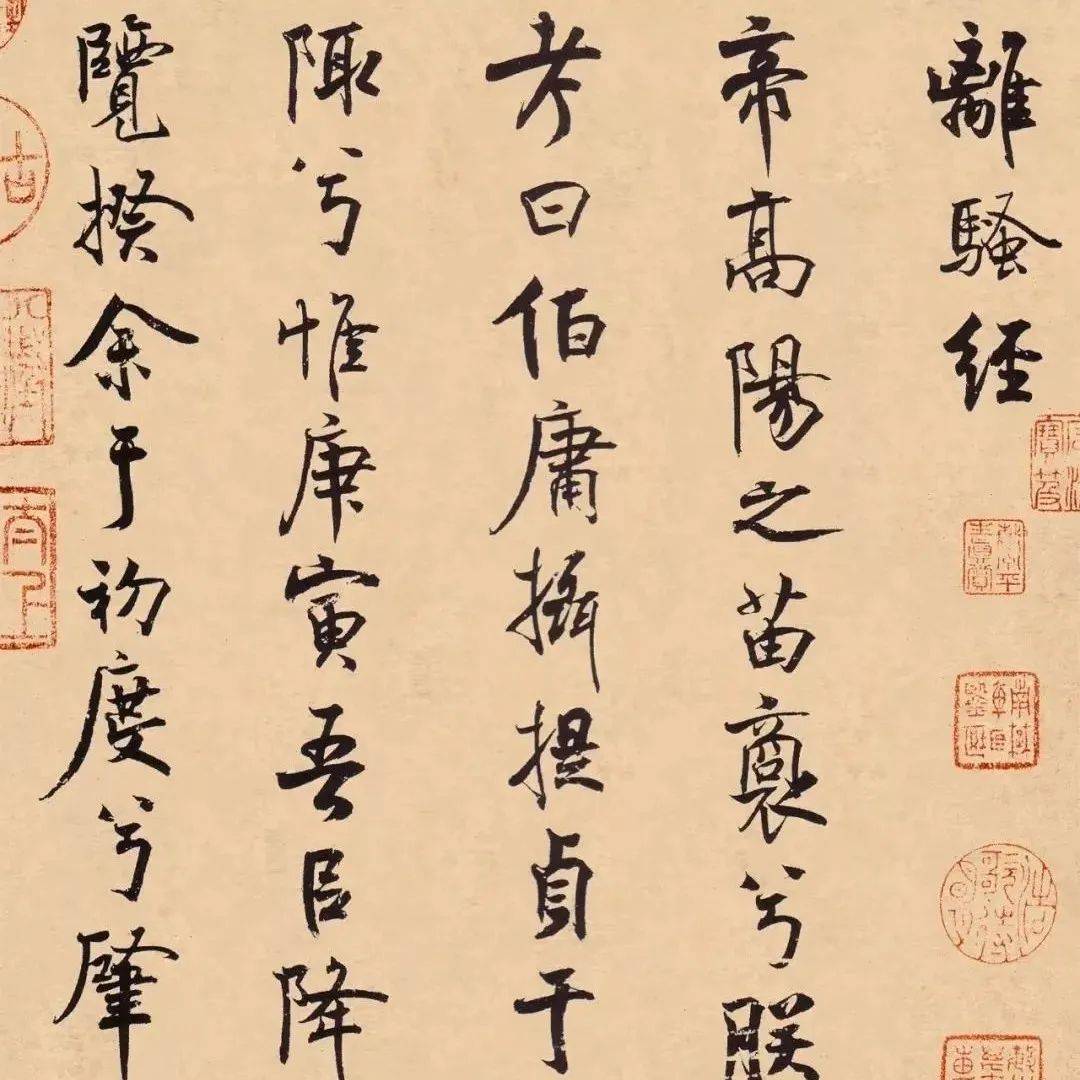 離騷經
帝高陽之苗裔兮朕
考曰伯庸攝提貞于
陬兮惟庚寅吾㠯降
覽揆余于初度兮肇